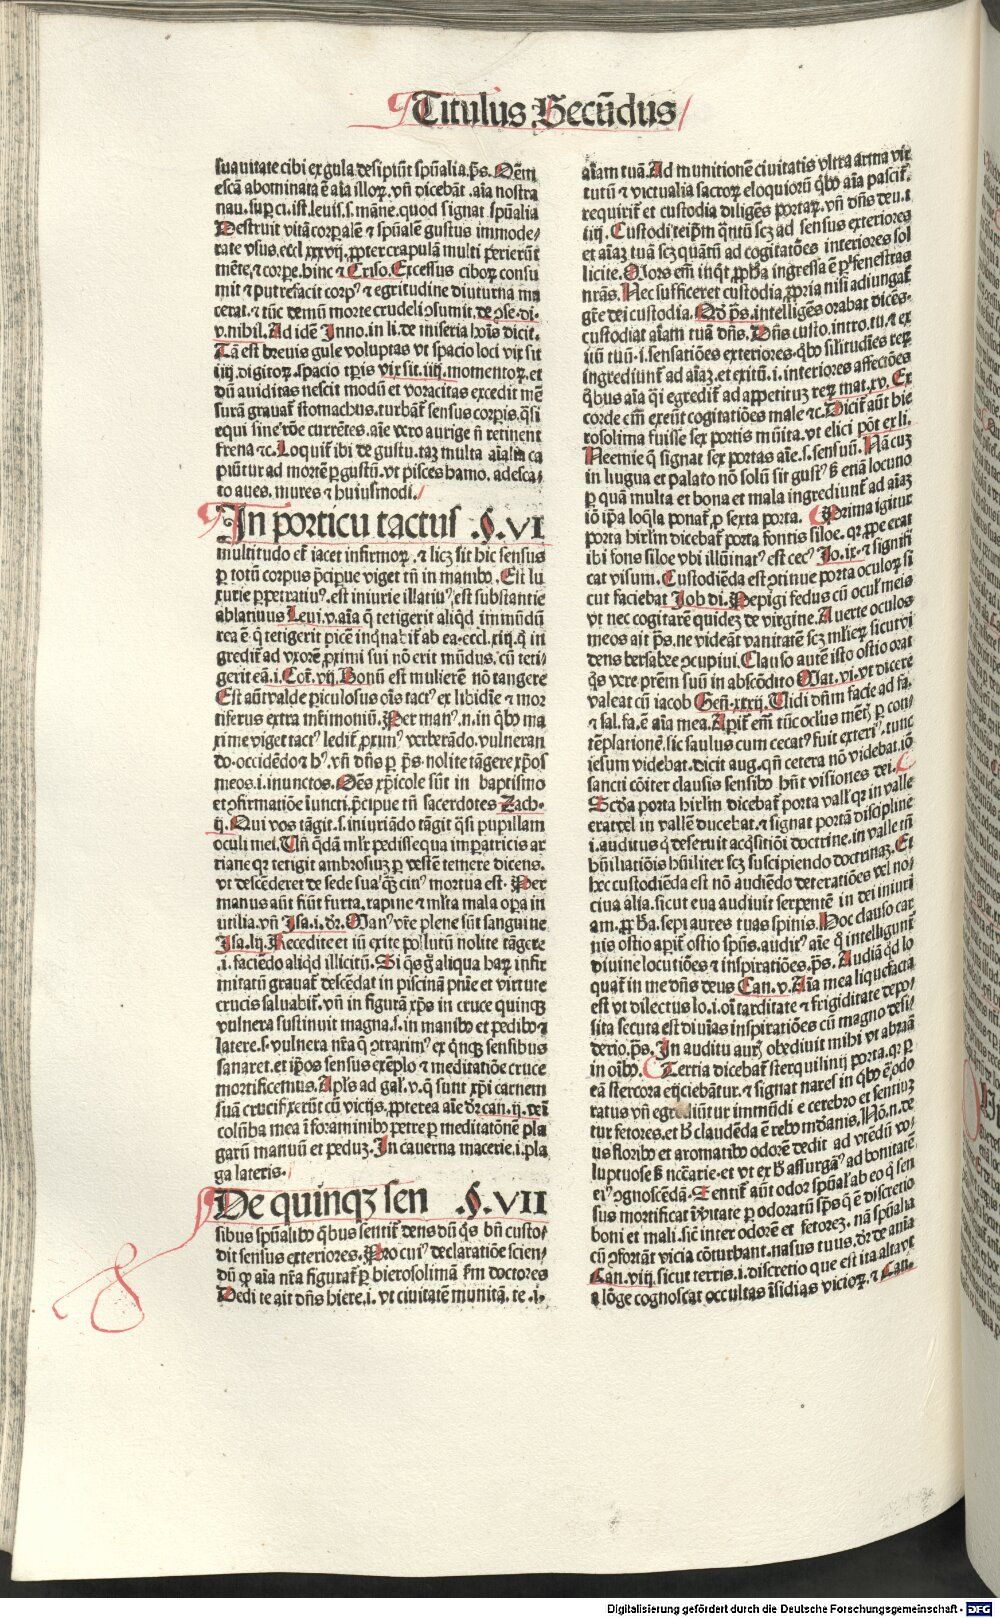 Titulus Secūdus
suauitate cibi ex gula desipiūt spūalia. p̄s. Oēm
escā abominata ē aīa illoꝝ. vñ dicebāt. aīa nostra
nau. suꝑ ci. ist. leuis. s. māne. quod signat spūalia
Destruit vitā corpalē ⁊ spūalē gustus immode⸗
rate vsus. eccl xxxvij. ꝓpter crapulā multi ꝑierūt
mēte, ⁊ corpe. hinc ⁊ Criso. Excessus ciboꝝ consu
mit ⁊ putrefacit corpꝰ ⁊ egritudine diuturna ma
cerat. ⁊ tūc demū morte crudeli ꝯsumit. de ꝯse. di.
v. nihil. Ad idē Inno. in li. de miseria hoīs dicit.
Tā est breuis gule voluptas vt spacio loci vix sit
iiij. digitoꝝ. spacio tꝑis vix sit. iiij. momentoꝝ. et
dū auiditas nescit modū et voracitas excedit mē
surā grauat̄ stomachus. turbat̄ sensus corꝑis. q̄si
equi sine rōe currētes. aīe vero aurige ñ retinent
frena ⁊c. Loquit̄ ibi de gustu. taꝫ multa aīalia ca
piūtur ad mortē ꝑ gustū. vt pisces hamo. adesca⸗
to aues. mures ⁊ huiusmodi.
In porticu tactus §. VI
multitudo et̄ iacet infirmoꝝ. ⁊ licꝫ sit hic sensus
ꝑ totū corpus p̄cipue viget tñ in manibꝰ. Est lu
xurie ꝑpetratiuꝰ. est iniurie illatiuꝰ, est substantie
ablatiuus Leui. v. aīa q̄ tetigerit aliqd immūdū
rea ē q̄ tetigerit picē inqnabit̄ ab ea. eccl. xiij. q̄ in
gredit̄ ad vxorē ꝓximi sui nō erit mūdus. cū teti⸗
gerit eā. i. Cor̄. vij. Bonū est mulierē nō tangere
Est aūt valde ꝑiculosus oīs tactꝰ ex libidīe ⁊ mor
tiferus extra mr̄imoniū. Per manꝰ. n. in qbꝰ ma
xime viget tactꝰ ledit̄ ꝓximꝰ verberādo. vulneran
do. occidēdo ⁊ hꝰ. vñ dñs ꝑ p̄s. nolite tāgere xp̄os
meos. i. inunctos. Oēs xp̄icole sūt in baptismo
et ꝯfirmatiōe iuncti. p̄cipue tñ sacerdotes Zach.
ij. Qui vos tāgit. s. iniuriādo tāgit q̄si pupillam
oculi mei. Un̄ q̄dā ml̄r pedissequa imꝑatricis ar
riane qꝫ tetigit ambrosiuꝫ ꝑ vestē temere dicens.
vt descēderet de sede sua q̄ꝫ citꝰ mortua est. Per
manus aūt fiūt furta, rapine ⁊ ml̄ta mala oꝑa in
utilia. vñ Isa. i. dr̄. Manꝰ vr̄e plene sūt sanguine
Isa. lij. Recedite et iū exite pollutū nolite tāgere
.i. faciēdo aliqd illicitū. Si q̄s ḡ aliqua haꝝ infir
mitatū grauat̄ descēdat in piscinā pn̄ie et virtute
crucis saluabit̄. vñ in figurā xp̄s in cruce quinqꝫ
vulnera sustinuit magna. s. in manibꝰ et pedibꝰ ⁊
latere. s. vulnera nr̄a q̄ ꝯtraximꝰ ex q̄nqꝫ sensibus
sanaret. et ip̄os sensus exēplo ⁊ meditatiōe cruce
mortificemus. Apl̄s ad gal. v. q̄ sunt xp̄i carnem
suā crucifixerūt cū vicijs. ꝓpterea aīe dr̄ can. ij. veī
colūba mea ī foraminibꝰ petre ꝑ meditatōnē pla
garū manuū et peduꝫ. In cauerna macerie. i. pla
ga lateris.
De quinqꝫ sen §. VII
sibus spūalibꝰ qbus sentit̄ deus dū q̄s bn̄ custo⸗
dit sensus exteriores. Pro cuiꝰ declaratiōe scien⸗
dū ꝙ aīa nr̄a figurat̄ ꝑ hierosolimā ẜm doctores
Dedi te ait dñs hiere. i. vt ciuitatē munitā. te. i.
aīam tuā. Ad munitionē ciuitatis vltra arma vir
tutū ⁊ victualia sacroꝝ eloquioꝝ qbꝰ aīa pascit̄.
requirit̄ et custodia diligēs portaꝝ. vñ dñs deu. i
iiij. Custodi teip̄m q̄ntū scꝫ ad sensus exteriores
et aīaꝫ tuā scꝫ quātū ad cogitatōes interiores sol
licite. Mors em̄ inqt ꝓpha ingressa ē ꝑ fenestras
nr̄as. Nec sufficeret custodia ꝓpria nisi adiungat̄
gr̄e dei custodia. Qd̄ p̄s. intelligēs orabat dicēs.
custodiat aīam tuā dñs. Dñs custo. intro. tu. ⁊ ex
itū tuū. i. sensatiōes exteriores. qbꝰ silitudīes reꝝ
ingrediunt̄ ad aīaꝫ. et exitū. i. interiores affectiōes
qbus aīa qi egredit̄ ad appetituꝫ reꝝ mat. xv. Ex
corde em̄ exeūt cogitatiōes male ⁊c. Dicit̄ aūt hie
rosolima fuisse sex portis mūita. vt elici pōt ex li.
Neemie q̄ signat sex portas aīe. s. sensuū. Nā cuꝫ
in lingua et palato nō solū sit gustꝰ sꝫ etiā locutio
ꝑ quā multa et bona et mala ingrediunt̄ ad aīaꝫ
iō ip̄a loqla ponat̄ ꝓ sexta porta. Prima igitur
porta hirlm̄ dicebat̄ porta fontis siloe. qꝛ ꝓpe erat
ibi fons siloe vbi illūinatꝰ est cecꝰ Jo. ix. ⁊ signifi
cat visum. Custodiēda est ꝯtinue porta oculoꝝ si
cut faciebat Job di. Pepigi fedus cū ocul̄ meis
vt nec cogitarē quidēꝫ de virgine. Auerte oculos
meos ait p̄s. ne videāt vanitatē scꝫ ml̄ieꝝ sicut vi
dens bersabee ꝯcupiui. Clauso autē isto ostio orat
q̄s vere pr̄em suū in abscōdito Mat. vi. vt dicere
valeat cū iacob Geñ. xxxij. Uidi dñm facie ad fa.
⁊ sal. fa. ē aīa mea. Aꝑit̄ em̄ tūc oclus mēt̄ ꝑ con⸗
tēplationē. sic saulus cum cecatꝰ fuit exteriꝰ, tunc
iesum videbat. dicit aug. qñ cetera nō videbat. iō
sancti cōiter clausis sensibꝰ hn̄t visiones dei.
Scd̄a porta hirlm̄ dicebat̄ porta vall̄ qꝛ in valle
erat vel in vallē ducebat. ⁊ signat portā discipline
.i. auditus q̄ deseruit acq̄sitiōi doctrine. in valle tñ
hūiliatiōis hūiliter scꝫ suscipiendo doctrinaꝫ. Et
hec custodiēda est nō audiēdo detractiōes vel no⸗
ciua alia. sicut eua audiuit serpentē in dei iniuri
am. ꝓpħa. sepi aures tuas spinis. Hoc clauso car
nis ostio aꝑit̄ ostio spūs. auditꝰ aīe q̄ intelligunt̄
diuine locutiōes ⁊ inspiratiōes. p̄s. Audiā qd lo
quat̄ in me dñs deus Can. v. Aīa mea liquefacta
est vt dilectus lo. i. oī tarditate ⁊ frigiditate depo⸗
sita secuta est diuīas inspiratiōes cū magno desi⸗
derio. p̄s. In auditu auꝝ obediuit mihi vt abraā
in oībꝰ. Tertia dicebat̄ sterquilinij porta. qꝛ ꝑ
eā stercora eijciebātur. ⁊ signat nares in qbꝰ ē odo
ratus vñ egrediūtur immūdi e cerebro et sentiuꝫ
tur fetores. et hꝰ claudēda ē rebꝰ mūdanis, Nō. n. de
us floribꝰ et aromatibꝰ odorē dedit ad vtēdū vo⸗
luptuose sꝫ nc̄carie. et vt ex hꝰ assurgāꝰ ad bonitatē
eiꝰ ꝯgnoscēdā. Sentit̄ aūt odor spūal̄ ab eo q̄ sen
sus mortificat īvitate ꝑ odoratū spūs q̄ ē discretio
boni et mali. sic inter odorē et fetoreꝫ. nā spūalia
cū ꝯfortāt vicia cōturbant. nasus tuus. dr̄ de anīa
Can. viij. sicut terris. i. discretio que est ita alta vt
a lōge cognoscat occultas īsidias vicioꝝ. ⁊ Can.
Digitalisierung gefördert durch die Deutsche Forschungsgemeinschaft - DFG